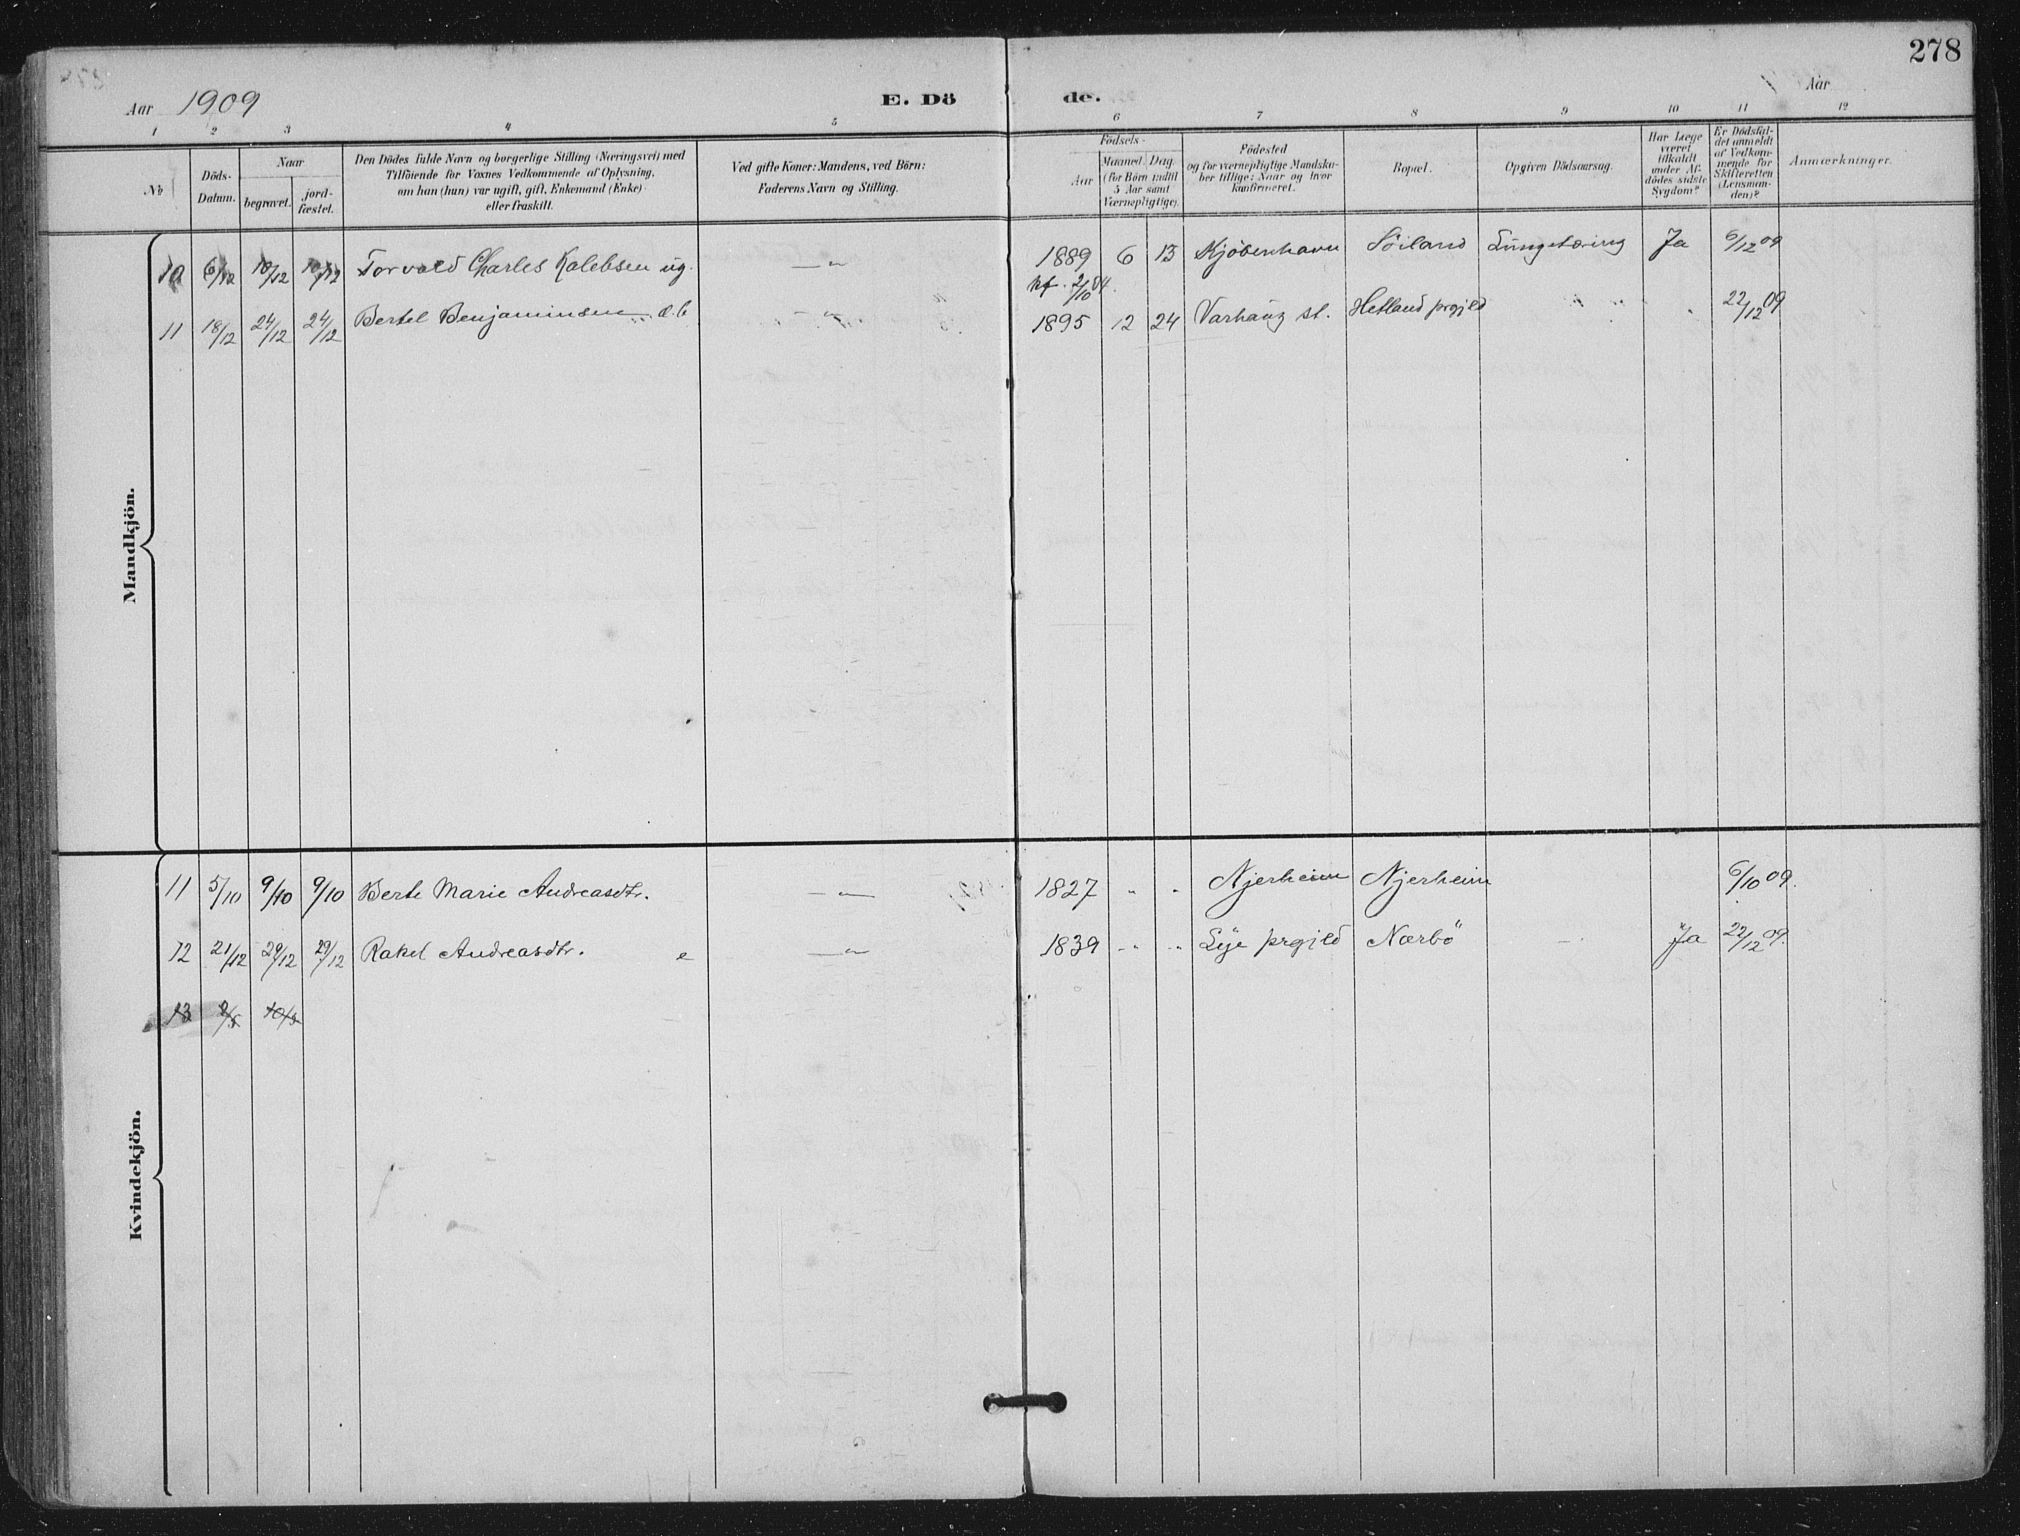 278
Aar 1909 E. Dö de. Aar
1 2 3 4 5 6 7 8 9 10 11 12
No
Döds-Datum.
Naar
begravet.
jord-fæstet.
Den Dödes fulde Navn og borgerlige Stilling (Næringsvei) med
Tilföiende for Voxnes Vedkommende af Oplysning,
om han (hun) var ugift, gift, Enkemand (Enke)
eller fraskilt.
Ved gifte Koner: Mandens, ved Börn:
Faderens Navn og Stilling.
Födsels-
Aar
Maaned. Dag.
(for Börn indtil
5 Aar samt
Værnepligtige).
Födested
og for værnepligtige Mandska-
ber tillige: Naar og hvor
konfirmeret.
Bopæl.
Opgiven Dödsaarsag.
Har Læge
været
tilkaldt
under Af-
dödes sidste
Sygdom?
Er Dödsfal-
det anmeldt
af Vedkom-
mende for
Skifteretten
(Lensman-
den)?
Anmærkninger.
Mandkjön.
10 6/12 10/12 10/12 Torvald Charles Kalebsen ug. —"— 1889 6 13 Kjöbenhavn Söiland Lungetæring Ja 6/12 09
kf. 2/10 04.
11 18/12 24/12 24/12 Bertel Benjaminsen d.b —"— 1895 12 24 Varhaug st. Hetland prgjld 22/12 09
Kvindekjön.
11 5/10 9/10 9/10 Berte Marie Andreasdtr. —"— 1827 " " Njerheim Njerheim 6/10 09.
12 21/12 29/12 29/12 Rakel Andreasdtr. e —"— 1839 " " Lye prgjld Nærbö Ja 22/12 09.
13 2/5 10/5